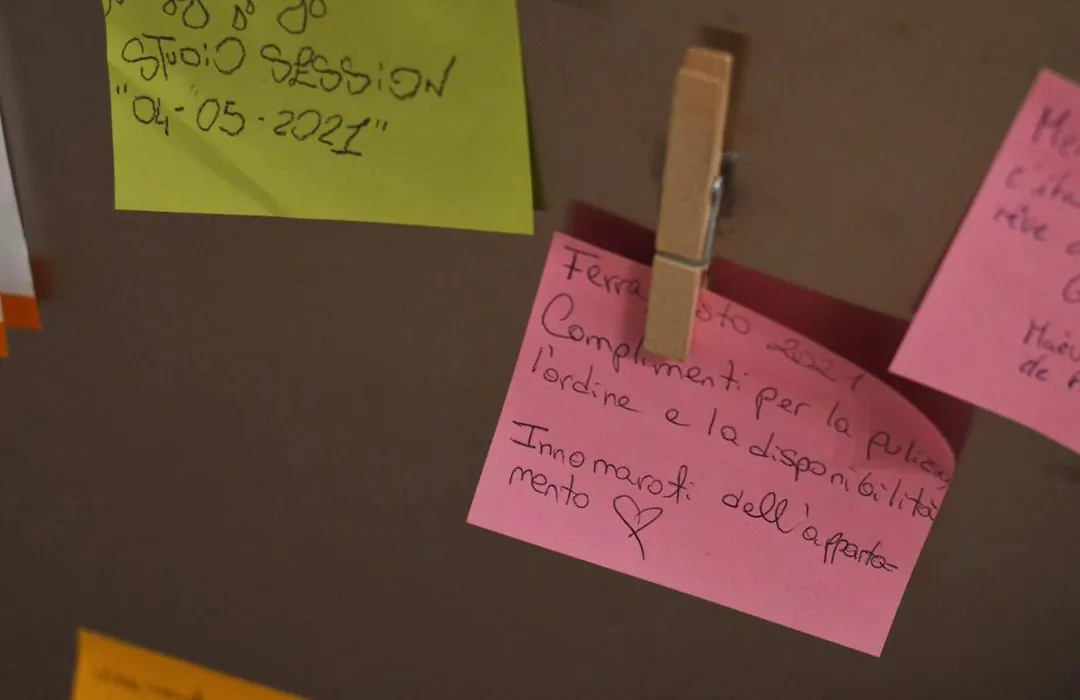 STUDIO SESSION
"04-05-2021"
Ferra oto 2021
Complimenti per la pulizia,
l'ordine e la disponibilità
Innomarati dell'apparta=
mento
Me
l'ita
rêve
de